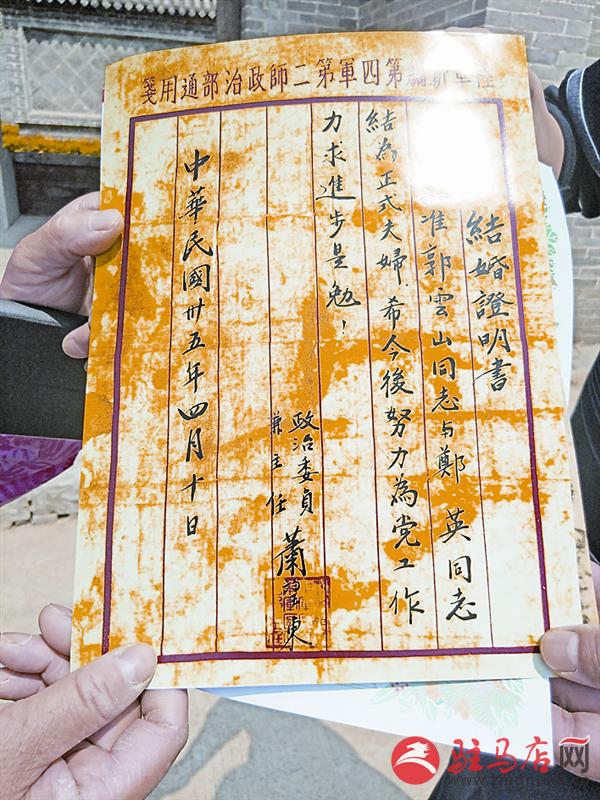 陸軍新編第四軍第二師政治部通用箋
結婚證明書
准郭雲山同志与鄭英同志
結為正式夫婦.希今後努力為党工作
力求進步是勉！
政治委員
兼主任
蕭
東
中華民國卅五年四月十日
驻马店网